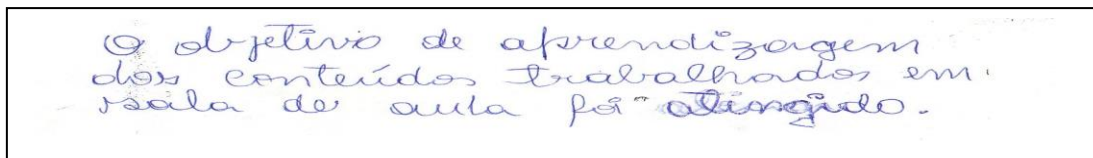 O objetivo de aprendizagem
dos conteúdos trabalhados em
sala de aula foi atingido.